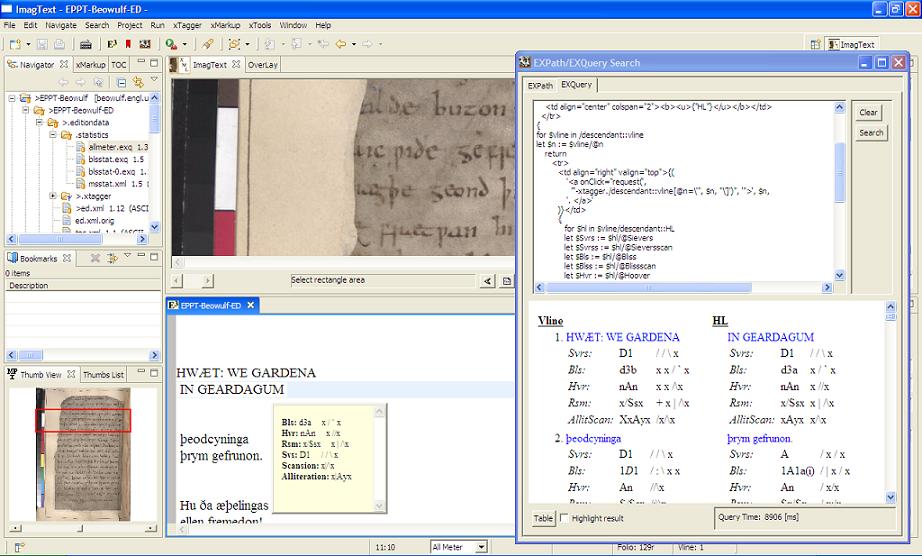 ImagText - EPPT-Beowulf-ED -
File Edit Navigate Search Project Run xTagger xMarkup xTools Window Help
ImagText
Navigator xMarkup TOC
>EPPT-Beowulf [beowulf.engl.u
>EPPT-Beowulf-ED
>.editiondata
.statistics
allmeter.exq 1.3
blsstat.exq 1.5
blsstat-0.exq 1.
msstat.xml 1.5
>.xtagger
>ed.xml 1.12 (ASCI
ed.xml.orig
Bookmarks
0 items
Description
Thumb View Thumbs List
ImagText OverLay
Select rectangle area
EPPT-Beowulf-ED
HWÆT: WE GARDENA
IN GEARDAGUM
þeodcyninga
þrym gefrunon.
Hu ða æþelingas
ellen fremedon!
Bls: d3a x / ` x
Hvr: nAn x //x
Rsm: x/Ssx x | /\x
Svs: D1 / / \ x
Scansion: x/x
Alliteration: x|Ayx
EXPath/EXQuery Search
EXPath EXQuery
<td align="center" colspan="2"><b><u>{"HL"}</u></b></td>
</tr>
{
for $vline in /descendant::vline
let $n := $vline/@n
return
<tr>
<td align="right" valign="top">{(
'<a onClick="request(',
"'-xtagger./descendant::vline[@n=\'", $n, "\']')", '">', $n,
'. </a>'
)}</td>
{
for $hl in $vline/descendant::HL
let $Svrs := $hl/@Sievers
let $Svrss := $hl/@Sieversscan
let $Bls := $hl/@Bliss
let $Blss := $hl/@Blissscan
let $Hvr := $hl/@Hoover
Clear
Search
Vline HL
1. HWÆT: WE GARDENA IN GEARDAGUM
Svrs: D1 / / \ x Svrs: D1 / / \ x
Bls: d3b x x / ` x Bls: d3a x / ` x
Hvr: nAn x x /\x Hvr: nAn x //x
Rsm: x/Ssx + x | /\x Rsm: x/Ssx x | /\x
AllitScan: XxAyx /x/\x AllitScan: xAyx x/\x
2. þeodcyninga þrym gefrunon.
Svrs: D1 / / \ x Svrs: A / x / x
Bls: 1D1 / : \ x x Bls: 1A1a(i) / | x / x
Hvr: An //\x Hvr: An / x/x
Table Highlight result Query Time: 8906 [ms]
11:10 All Meter Folio: 129r Vline: 1